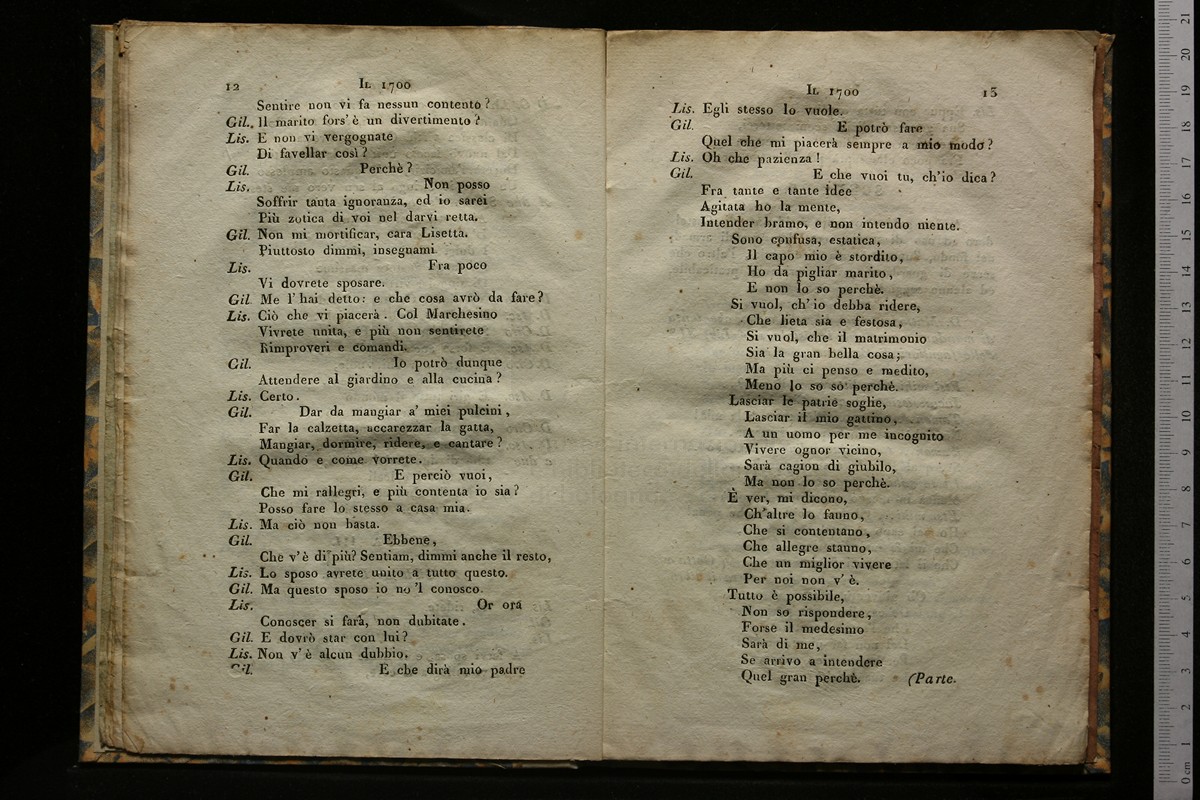 12
IL 1700
Sentire non vi fa nessun contento?
Gil. Il marito fors' è un divertimento?
Lis. E non vi vergognate
Di favellar così?
Gil. Perchè?
Lis. Non posso
Soffrir tanta ignoranza, ed io sarei
Più zotica di voi nel darvi retta.
Gil. Non mi mortificar, cara Lisetta.
Piuttosto dimmi, insegnami.
Lis. Fra poco
Vi dovrete sposare.
Gil. Me l'hai detto: e che cosa avrò da fare?
Lis. Ciò che vi piacerà. Col Marchesino
Vivrete unita, e più non sentirete
Rimproveri e comandi.
Gil. Io potrò dunque
Attendere al giardino e alla cucina?
Lis. Certo.
Gil. Dar da mangiar a' miei pulcini,
Far la calzetta, accarezzar la gatta,
Mangiar, dormire, ridere, e cantare?
Lis. Quando e come vorrete.
Gil. E perciò vuoi,
Che mi rallegri, e più contenta io sia?
Posso fare lo stesso a casa mia.
Lis. Ma ciò non basta.
Gil. Ebbene,
Che v'è di più? Sentiam, dimmi anche il resto,
Lis. Lo sposo avrete unito a tutto questo.
Gil. Ma questo sposo io no 'l conosco.
Lis. Or ora
Conoscer si farà, non dubitate.
Gil. E dovrò star con lui?
Lis. Non v'è alcun dubbio.
Gil. E che dirà mio padre
IL 1700
13
Lis. Egli stesso lo vuole.
Gil. E potrò fare
Quel che mi piacerà sempre a mio modo?
Lis. Oh che pazienza!
Gil. E che vuoi tu, ch'io dica?
Fra tante e tante idee
Agitata ho la mente,
Intender bramo, e non intendo niente.
Sono confusa, estatica,
Il capo mio è stordito,
Ho da pigliar marito,
E non lo so perchè.
Si vuol, ch'io debba ridere,
Che lieta sia e festosa,
Si vuol, che il matrimonio
Sia la gran bella cosa;
Ma più ci penso e medito,
Meno lo so so perchè.
Lasciar le patrie soglie,
Lasciar il mio gattino,
A un uomo per me incognito
Vivere ognor vicino,
Sarà cagion di giubilo,
Ma non lo so perchè.
È ver, mi dicono,
Ch'altre lo fanno,
Che si contentano,
Che allegre stanno,
Che un miglior vivere
Per noi non v'è.
Tutto è possibile,
Non so rispondere,
Forse il medesimo
Sarà di me,
Se arrivo a intendere
Quel gran perchè. (Parte.
0 cm 1 2 3 4 5 6 7 8 9 10 11 12 13 14 15 16 17 18 19 20 21